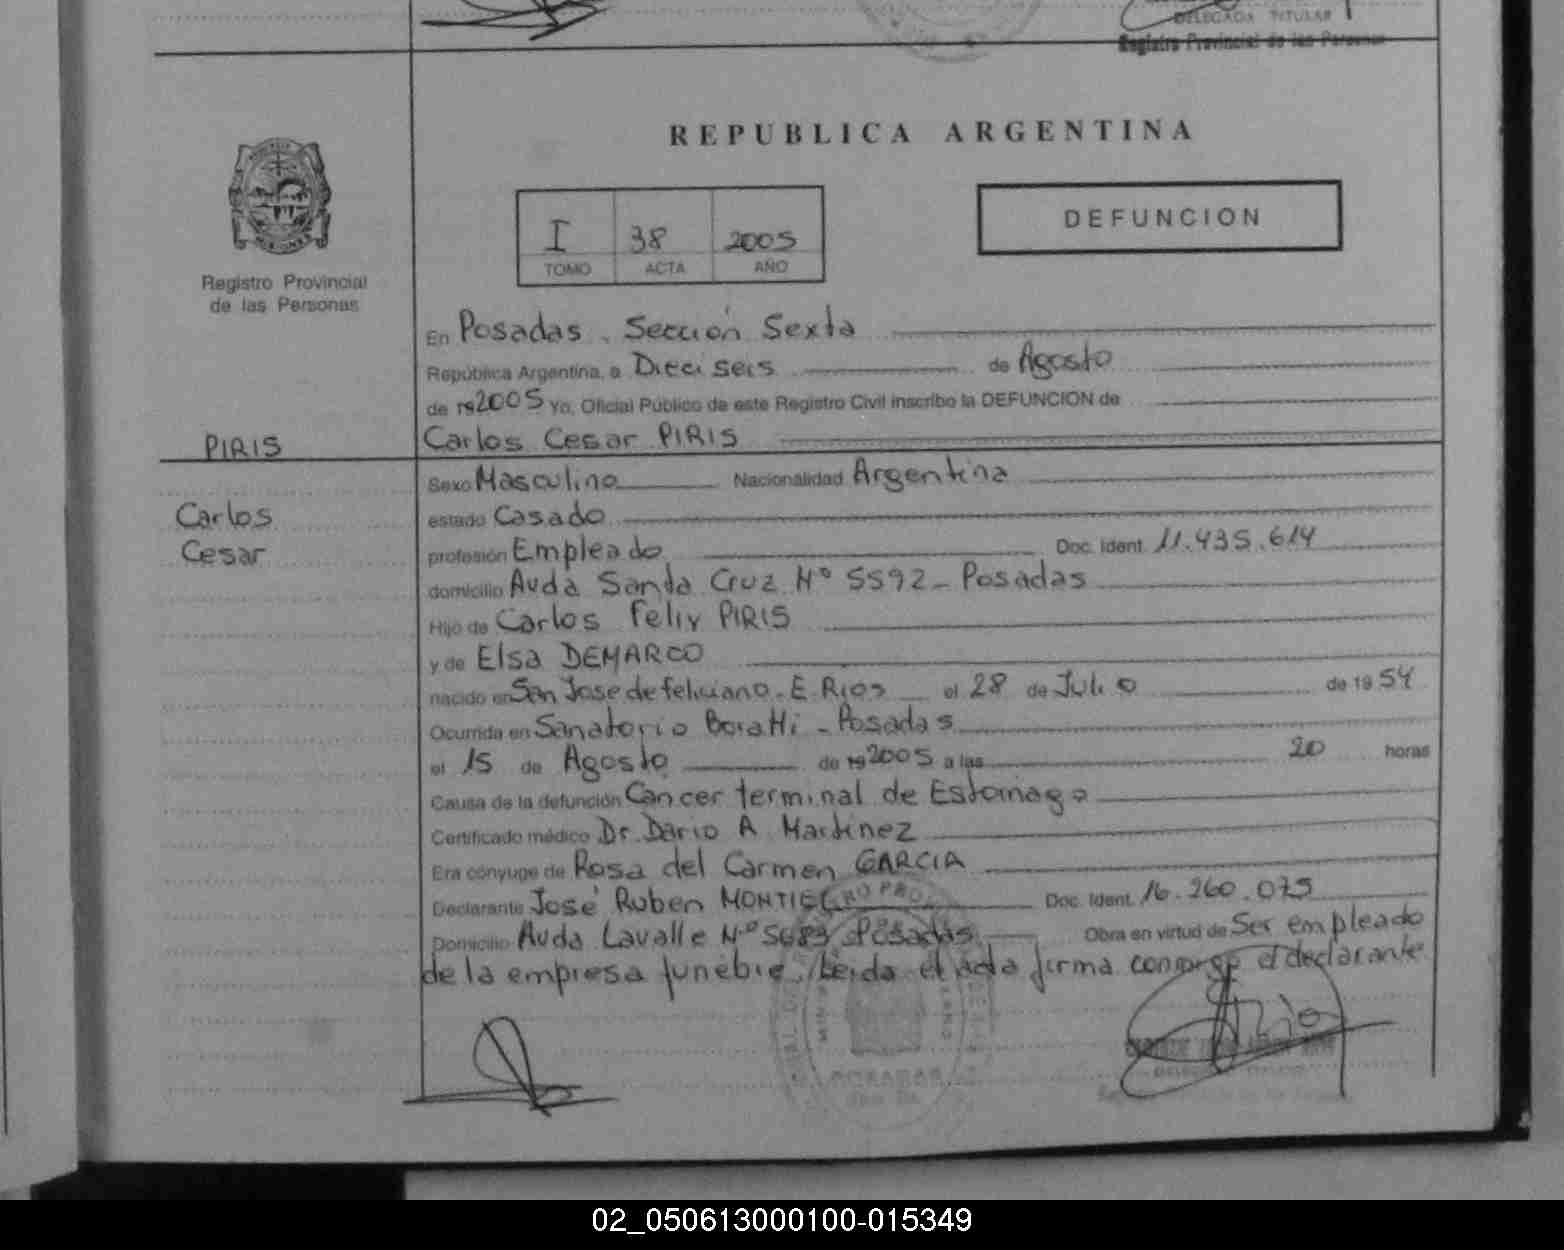 DELEGADA TITULAR
Registro Provincial de las Personas
REPUBLICA ARGENTINA
I 38 2005
TOMO ACTA AÑO
DEFUNCION
Registro Provincial
de las Personas
En Posadas - Sección Sexta
República Argentina, a Dieciseis de Agosto
de 19 2005 Yo, Oficial Público de este Registro Civil inscribo la DEFUNCION de
PIRIS
Carlos Cesar PIRIS
Carlos
Cesar
Sexo Masculino Nacionalidad Argentina
estado Casado
profesión Empleado Doc. Ident. 11.435.614
domicilio Avda Santa Cruz Nº 5592 - Posadas
Hijo de Carlos Felix PIRIS
y de Elsa DEMARCO
nacido en San Jose de feliciano - E. Rios el 28 de Julio de 19 54
Ocurrida en Sanatorio Boratti - Posadas
el 15 de Agosto de 19 2005 a las 20 horas
Causa de la defunción Cancer terminal de Estomago
Certificado médico Dr. Dario A Martinez
Era cónyuge de Rosa del Carmen GARCIA
Declarante José Ruben MONTIEL Doc. Ident. 16.260.075
Domicilio Avda Lavalle Nº 5683 Posadas Obra en virtud de Ser empleado
de la empresa funebre. Leida el acta firma conmigo el declarante
POSADAS
02_050613000100-015349